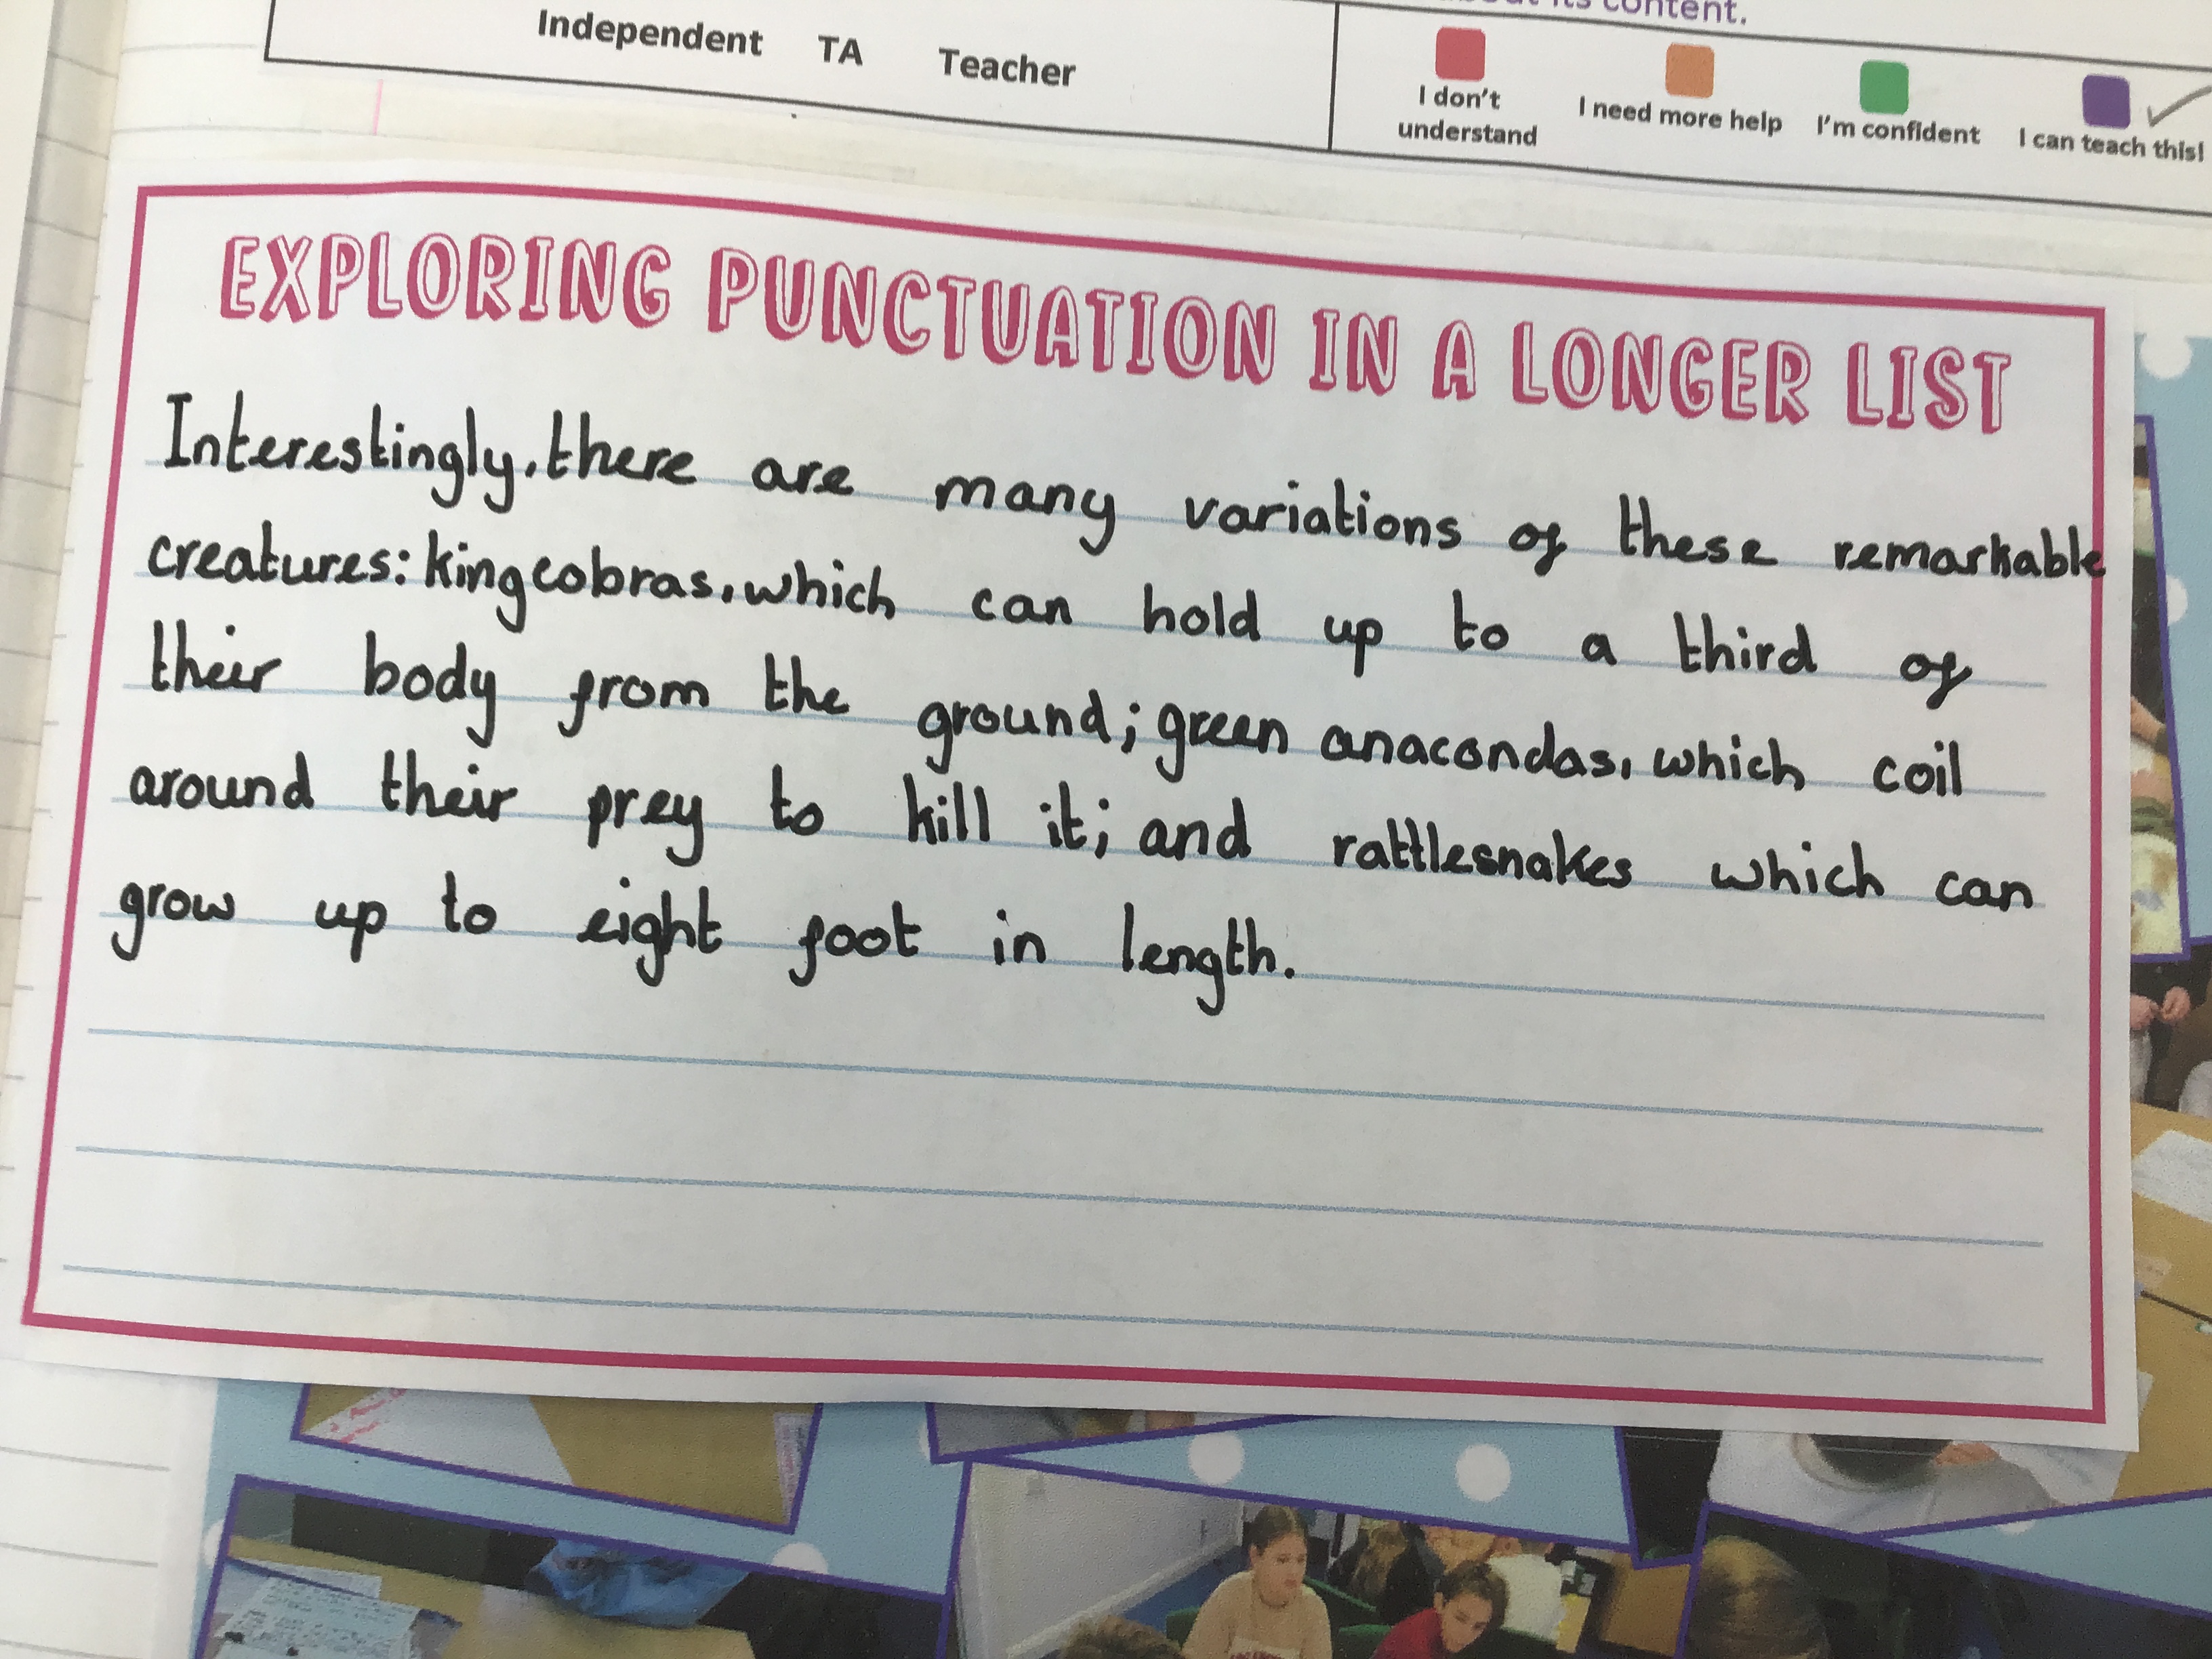 its content.
Independent TA Teacher
I don't understand
I need more help
I'm confident
I can teach this!
EXPLORING PUNCTUATION IN A LONGER LIST
Interestingly, there are many variations of these remarkable
creatures: king cobras, which can hold up to a third of
their body from the ground; green anacondas, which coil
around their prey to kill it; and rattlesnakes which can
grow up to eight foot in length.